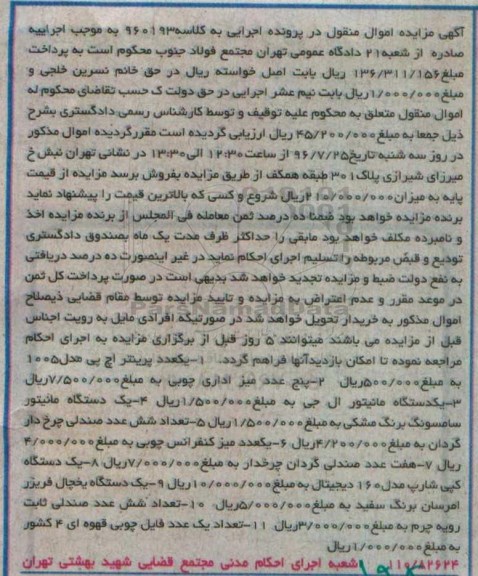 آگهی مزایده اموال منقول در پرونده اجرایی به کلاسه۹۶۰۱۹۳ به موجب اجراییه
صادره از شعبه۲۱ دادگاه عمومی تهران مجتمع فولاد جنوب محکوم است به پرداخت
مبلغ۱۳۶/۳۱۱/۱۵۶ ریال بابت اصل خواسته ریال در حق خانم نسرین خلجی و
مبلغ۱/۰۰۰/۰۰۰ریال بابت نیم عشر اجرایی در حق دولت ک حسب تقاضای محکوم له
اموال منقول متعلق به محکوم علیه توقیف و توسط کارشناس رسمی دادگستری بشرح
ذیل جمعا به مبلغ۴۵/۲۰۰/۰۰۰ ریال ارزیابی گردیده است مقررگردیده اموال مذکور
در روز سه شنبه تاریخ۹۶/۷/۲۵ از ساعت۱۲:۳۰ الی۱۳:۳۰ در نشانی تهران نبش خ
میرزای شیرازی پلاک۳۰۱ طبقه همکف از طریق مزایده بفروش برسد مزایده از قیمت
پایه به میزان ریال شروع و کسی که بالاترین قیمت را پیشنهاد نماید
برنده مزایده خواهد بود ضمنا ده درصد ثمن معامله فی المجلس از برنده مزایده اخذ
و نامبرده مکلف خواهد بود مابقی را حداکثر ظرف مدت یک ماه بصندوق دادگستری
تودیع و قبض مربوطه را تسلیم اجرای احکام نماید در غیر اینصورت ده درصد دریافتی
به نفع دولت ضبط و مزایده تجدید خواهد شد بدیهی است در صورت پرداخت کل ثمن
در موعد مقرر و عدم اعتراض به مزایده و تایید مزایده توسط مقام قضایی ذیصلاح
اموال مذکور به خریدار تحویل خواهد شد در صورتیکه افرادی مایل به رویت اجناس
قبل از مزایده می باشند میتوانند ۵ روز قبل از برگزاری مزایده به اجرای احکام
مراجعه نموده تا امکان بازدیدآنها فراهم گردد. ۱-یکعدد پرینتر اچ پی مدل۱۰۰۵
به مبلغ۵۰۰/۰۰۰ریال ۲-پنج عدد میز اداری چوبی به مبلغ۷/۵۰۰/۰۰۰ریال
۳-یکدستگاه مانیتور ال جی به مبلغ۱/۵۰۰/۰۰۰ریال ۴-یک دستگاه مانیتور
سامسونگ برنگ مشکی به مبلغ۱/۵۰۰/۰۰۰ریال ۵-تعداد شش عدد صندلی چرخ دار
گردان به مبلغ۴/۲۰۰/۰۰۰ریال ۶-یکعدد میز کنفرانس چوبی به مبلغ۴/۰۰۰/۰۰۰
ریال ۷-هفت عدد صندلی گردان چرخدار به مبلغ۷/۰۰۰/۰۰۰ریال ۸-یک دستگاه
کپی شارپ مدل۱۶۰ دیجیتال به مبلغ۱۰/۰۰۰/۰۰۰ریال ۹-یک دستگاه یخچال فریزر
امرسان برنگ سفید به مبلغ۵/۰۰۰/۰۰۰ریال ۱۰-تعداد شش عدد صندلی ثابت
رویه چرم به مبلغ۳/۰۰۰/۰۰۰ریال ۱۱-تعداد یک عدد فایل چوبی قهوه ای ۴ کشور
به مبلغ۱/۰۰۰/۰۰۰ریال
۱۱۰/۸۲۶۲۴ شعبه اجرای احکام مدنی مجتمع قضایی شهید بهشتی تهران